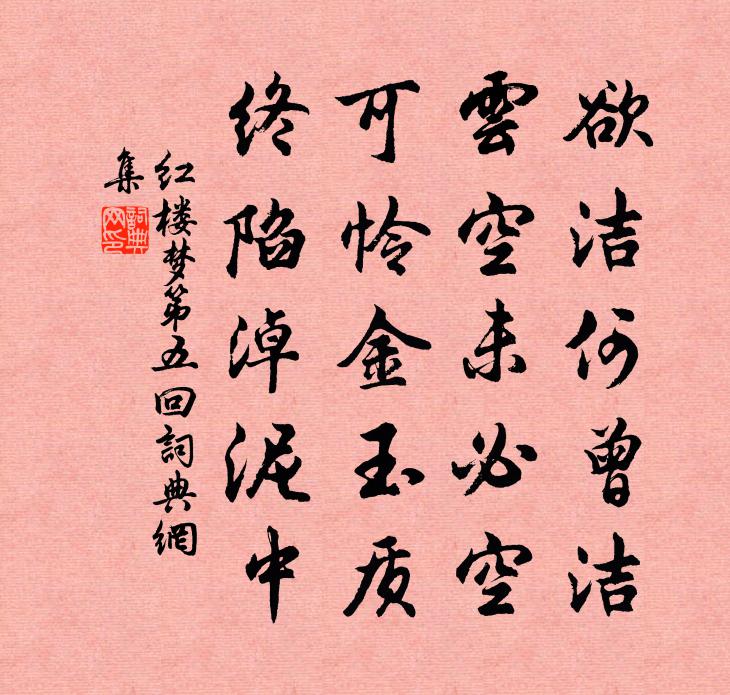 欲洁何曾洁
雲空未必空
可怜金玉质
终陷淖泥中
红楼梦第五回詞典網
集
詞典网印